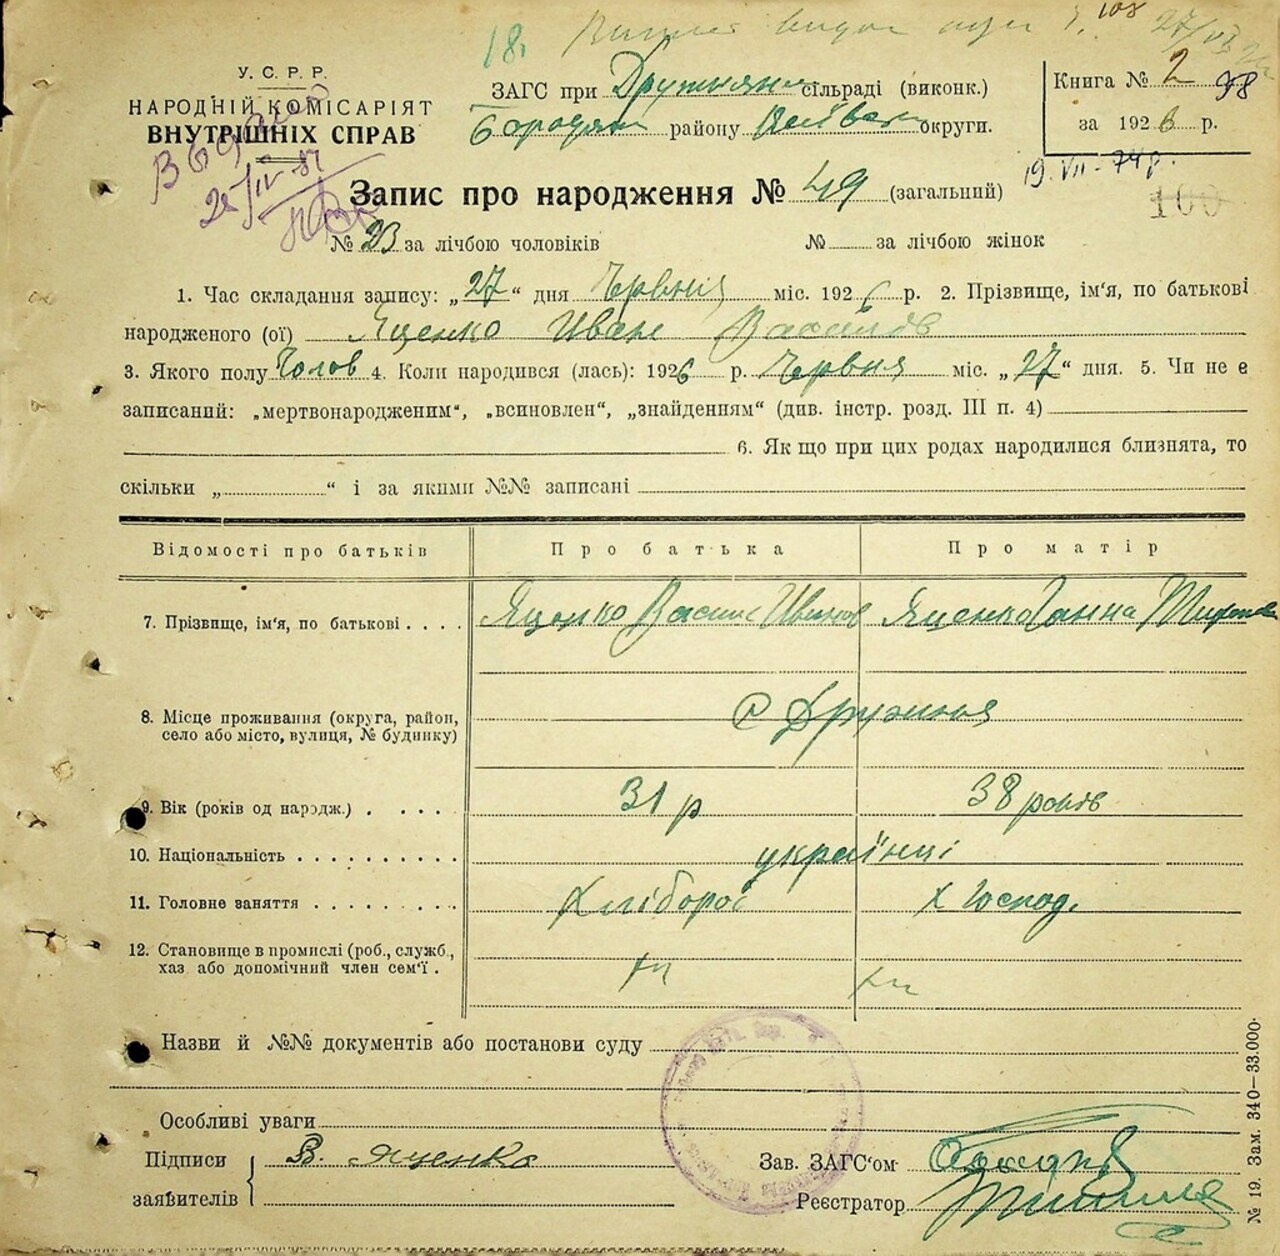 18.
108
27/VII
У. С. Р. Р.
НАРОДНІЙ КОМІСАРІЯТ
ВНУТРІШНІХ СПРАВ
ЗАГС при Дружнян сільраді (виконк.)
Бородян району Київськ округи.
Книга № 2 98
за 1926 р.
19.VII-74р.
100
Запис про народження № 49 (загальний)
№ 23 за лічбою чоловіків № за лічбою жінок
1. Час складання запису: „27“ дня Червня міс. 1926 р. 2. Прізвище, ім‘я, по батькові
народженого (ої) Яценко Иван Василів
3. Якого полу Чолов 4. Коли народився (лась): 1926 р. Червня міс. „27“ дня. 5. Чи не є
записаний: „мертвонародженим“, „всиновлен“, „знайденням“ (див. інстр. розд. III п. 4)
6. Як що при цих родах народилися близнята, то
скільки „ “ і за якими №№ записані
Відомості про батьків Про батька Про матір
7. Прізвище, ім‘я, по батькові . . . . Яценко Василь Иванов Яценко Ганна
8. Місце проживання (округа, район,
село або місто, вулиця, № будинку)
с Дружня
9. Вік (років од народж.) . . . . 31 р 38 років
10. Національність . . . . . . . . . . українці
11. Головне заняття . . . . . . . . Хлібороб х господ.
12. Становище в промислі (роб., служб.,
хаз або допомічний член сем‘ї .
Назви й №№ документів або постанови суду
Особливі уваги
Підписи
заявітелів
В. Яценко
Зав. ЗАГС‘ом
Реєстратор
№ 19. Зам. 340—33.000.